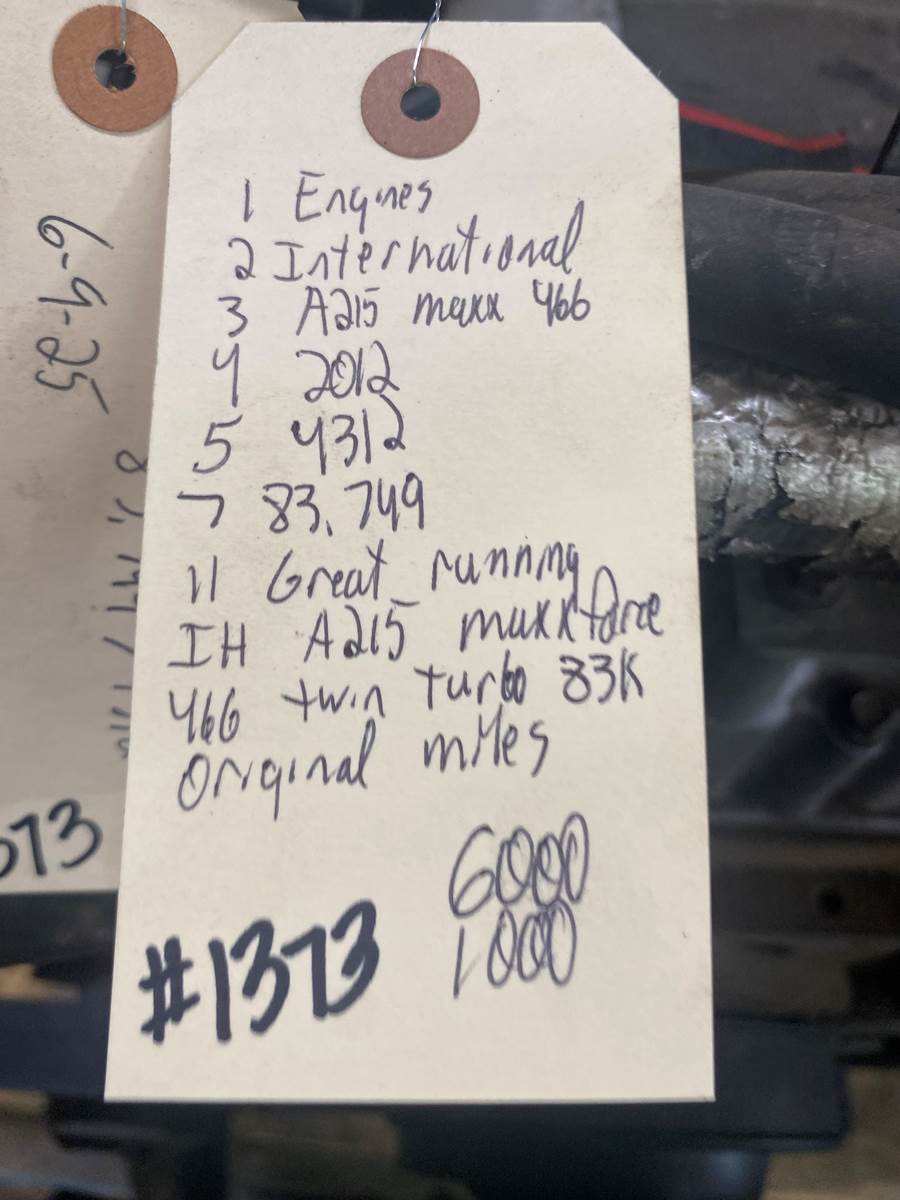 1 Engines
2 International
3 A215 maxx 466
4 2012
5 4312
7 83.749
11 Great running
IH A215 maxxforce
466 twin turbo 83K
Original miles
6000
1000
#1373
6-9-25
373